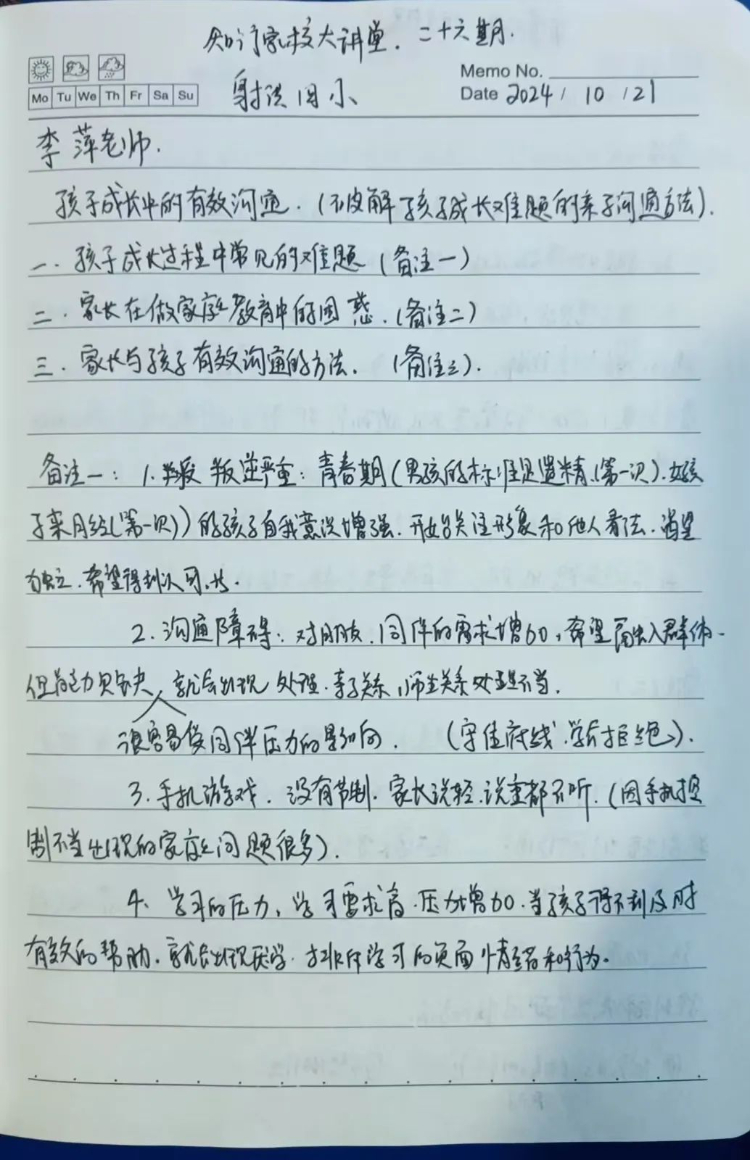 知行家校大讲堂. 二十六期.
Memo No.
Mo Tu We Th Fr Sa Su
射洪 小
Date 2024 / 10 / 21
李萍老师.
孩子成长中的有效沟通. (破解孩子成长难题的亲子沟通方法).
一. 孩子成长过程中常见的难题 (备注一)
二. 家长在做家庭教育中的困惑. (备注二)
三. 家长与孩子有效沟通的方法. (备注三).
备注一: 1. 叛逆严重: 青春期 (男孩的标准是遗精.(第一次). 女孩
子来月经(第一次)) 的孩子自我意识增强. 开始关注形象和他人看法. 渴望
独立. 希望得到认可.
2. 沟通障碍: 对朋友. 同伴的需求增加, 希望融入群体.
但能力欠缺, 就会出现处理 关系, 师生关系处理不当.
很容易受同伴压力的影响. (守住底线. 学会拒绝).
3. 手机游戏. 没有节制. 家长说轻. 说重都不听. (因手机控
制不当出现的家庭问题很多).
4. 学习的压力, 学习要求高. 压力增加. 当孩子得不到及时
有效的帮助. 就会出现厌学. 排斥学习的负面情绪和行为.